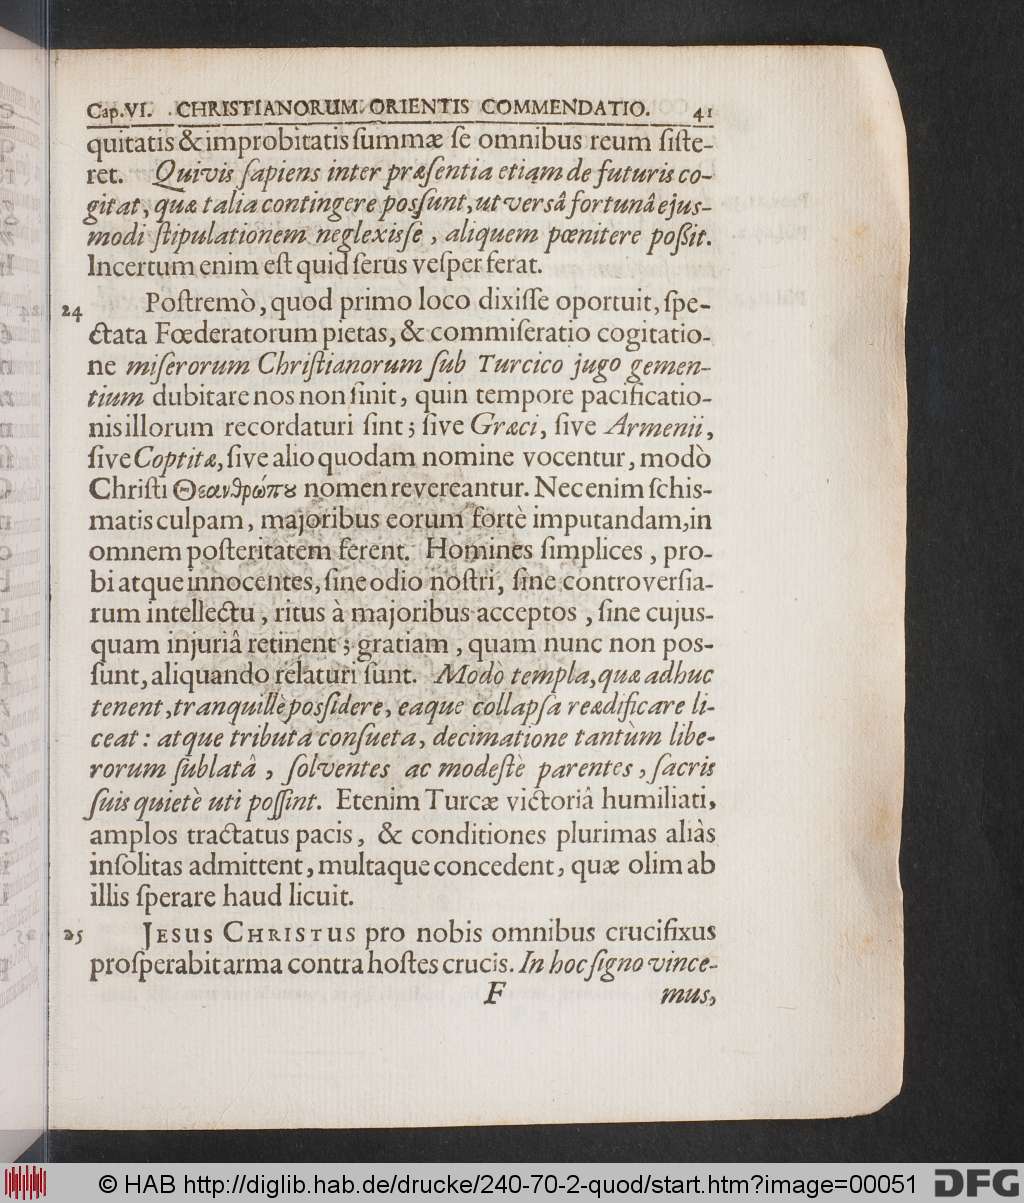 Cap. VI. CHRISTIANORUM ORIENTIS COMMENDATIO. 41
quitatis & improbitatis ſummæ ſe omnibus reum ſiſte-
ret. Quivis ſapiens inter præſentia etiam de futuris co-
gitat, quæ talia contingere poſſunt, ut verſâ fortunâ ejus-
modi ſtipulationem neglexiſſe, aliquem pœnitere poßit.
Incertum enim eſt quid ſerus veſper ferat.
24 Poſtremò, quod primo loco dixiſſe oportuit, ſpe-
ctata Fœderatorum pietas, & commiſeratio cogitatio-
ne miſerorum Chriſtianorum ſub Turcico jugo gemen-
tium dubitare nos non ſinit, quin tempore pacificatio-
nis illorum recordaturi ſint; ſive Græci, ſive Armenii,
ſive Coptitæ, ſive alio quodam nomine vocentur, modò
Chriſti Θεανθρώπȣ nomen revereantur. Nec enim ſchis-
matis culpam, majoribus eorum fortè imputandam, in
omnem poſteritatem ferent. Homines ſimplices, pro-
bi atque innocentes, ſine odio noſtri, ſine controverſia-
rum intellectu, ritus à majoribus acceptos, ſine cujus-
quam injuriâ retinent; gratiam, quam nunc non poſ-
ſunt, aliquando relaturi ſunt. Modò templa, quæ adhuc
tenent, tranquillè poſſidere, eaque collapſa reædificare li-
ceat: atque tributa conſueta, decimatione tantùm libe-
rorum ſublatâ, ſolventes ac modeſtè parentes, ſacris
ſuis quietè uti poſſint. Etenim Turcæ victoriâ humiliati,
amplos tractatus pacis, & conditiones plurimas aliàs
inſolitas admittent, multaque concedent, quæ olim ab
illis ſperare haud licuit.
25 JESUS CHRISTUS pro nobis omnibus crucifixus
proſperabit arma contra hoſtes crucis. In hoc ſigno vince-
F mus,
© HAB http://diglib.hab.de/drucke/240-70-2-quod/start.htm?image=00051
DFG